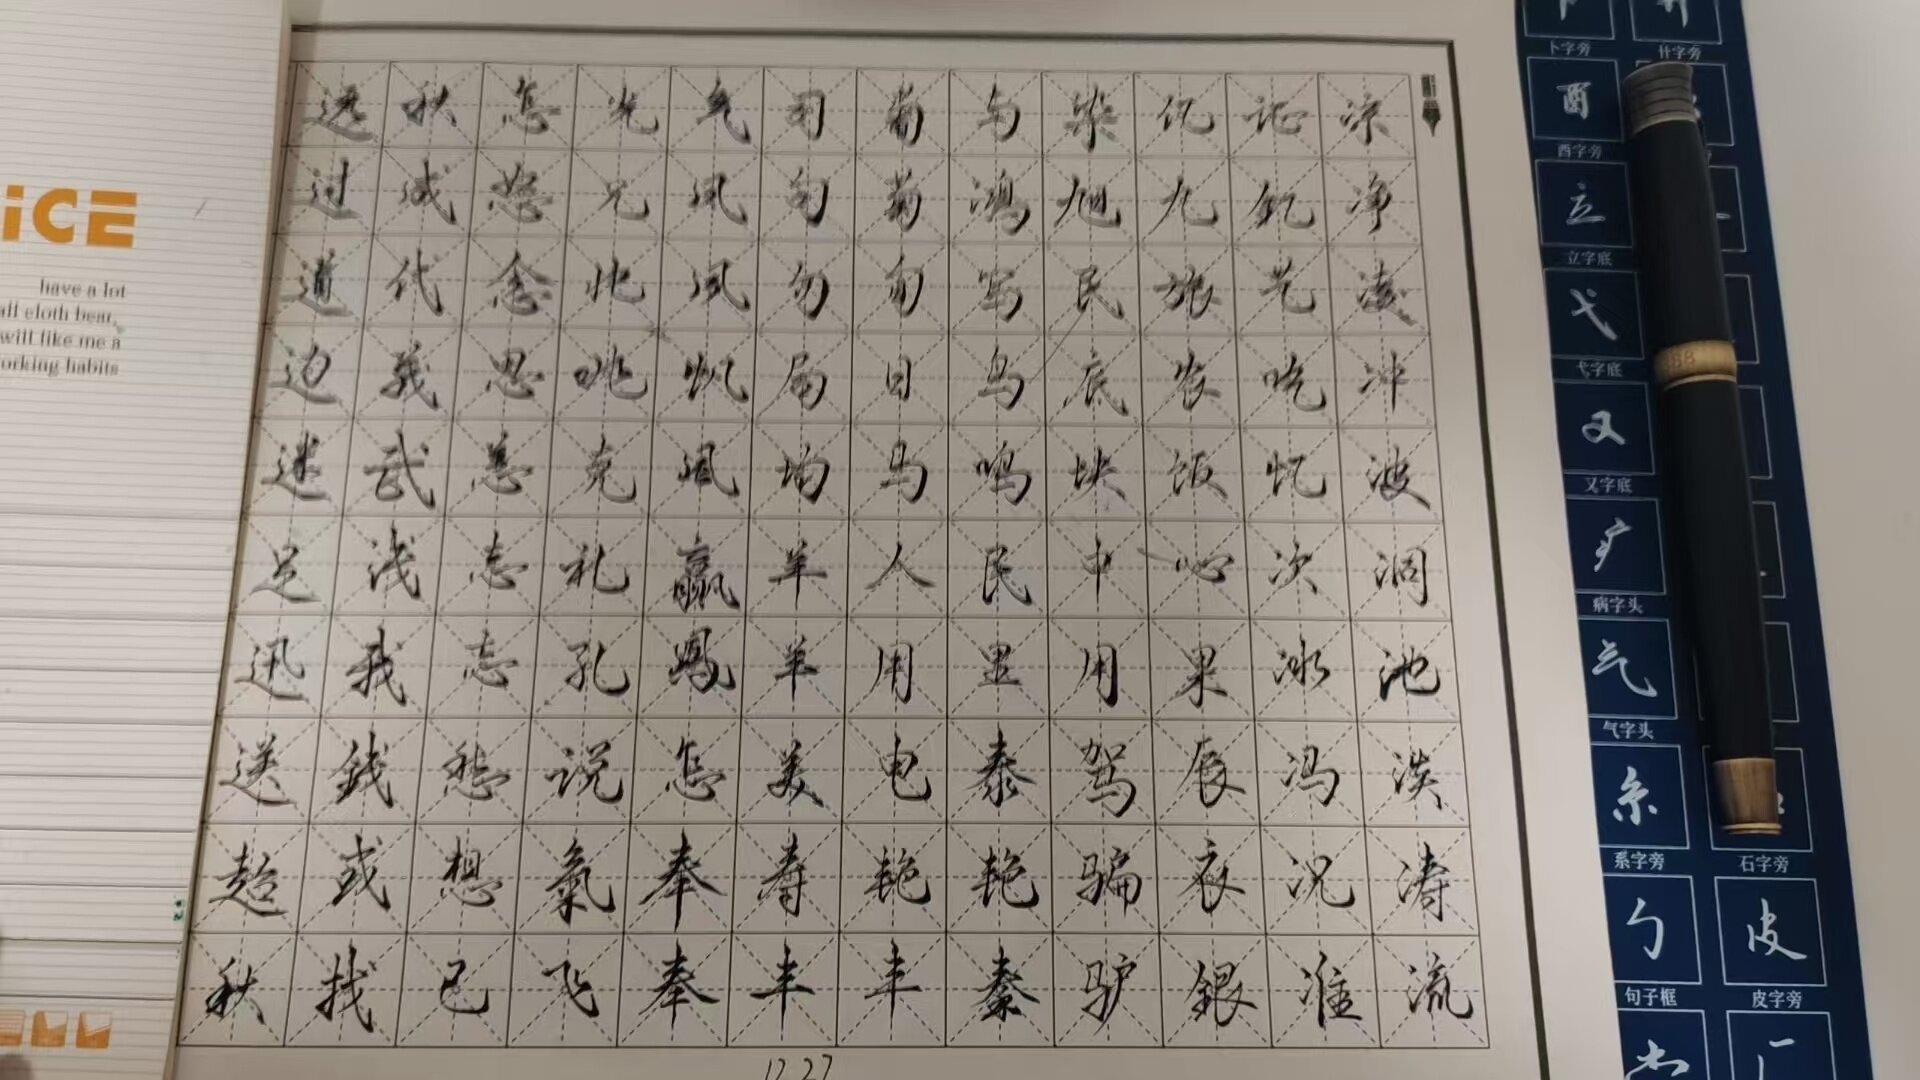 凉净凌冲波洞池淡涛流
记艺吃忆次冰冯况准
九旅农饭心果辰衣銀
染旭民底块中用驾骗驴
与鸿写鸟鸣民里泰艳秦
菊日马人用电艳丰
司句勿局均羊羊美寿丰
气风风帆风赢鳳怎奉奉
光兄北咣克礼孔说氣飞
怎怒念思急志志愁想己
秋成代義武浅我錢或找
远过道边迷足迅送超秋
12.27
iCE
have a lot
all cloth bear,
will like me a
orking habits
卜字旁
廿字旁
酉
酉字旁
立
立字底
弋
弋字底
又
又字底
疒
病字头
气
气字头
系字旁
石字旁
勹
皮
句子框
皮字旁